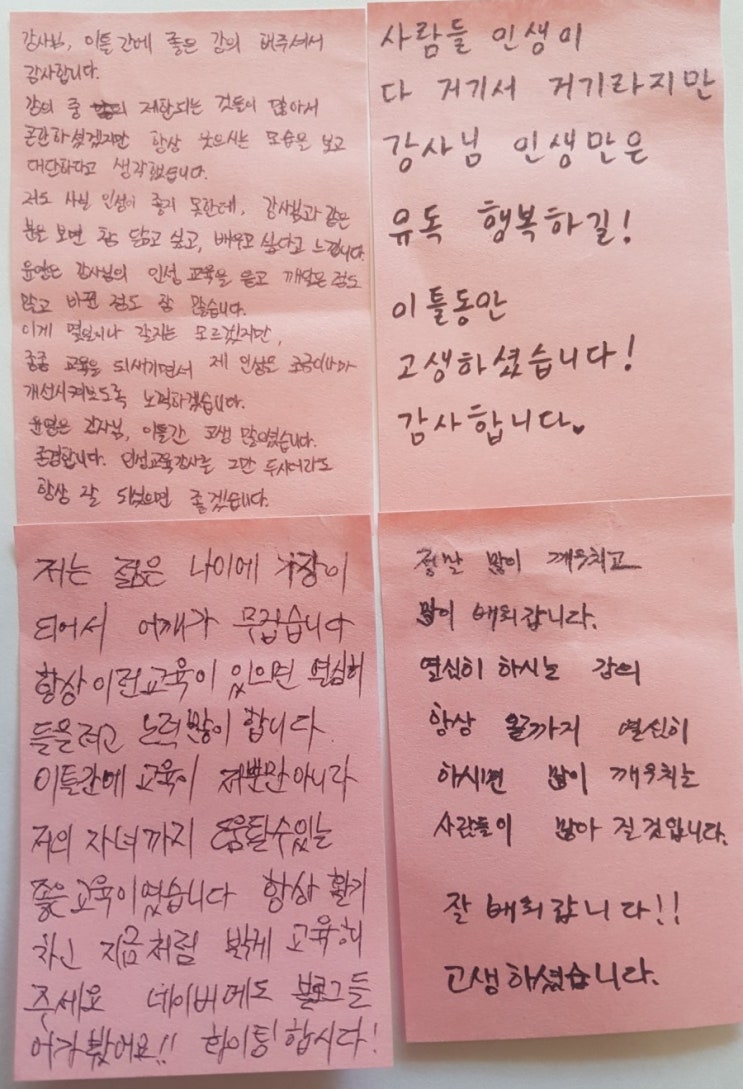 강사님, 이틀간에 좋은 강의 해주셔서
감사합니다.
강의 중 제한되는 것들이 많아서
곤란하셨겠지만 항상 웃으시는 모습을 보고
대단하다고 생각했습니다.
저도 사실 인성이 좋지 못한데, 강사님과 같은
분을 보면 참 닮고 싶고, 배우고 싶다고 느낍니다.
윤영은 강사님의 인성 교육을 듣고 깨달은 점도
많고 바뀐 점도 참 많습니다.
이게 몇일이나 갈지는 모르겠지만,
종종 교육을 되새기면서 제 인성은 조금이나마
개선시켜보도록 노력하겠습니다.
윤영은 강사님, 이틀간 고생 많으셨습니다.
존경합니다. 인성교육강사를 그만 두시더라도
항상 잘 되셨으면 좋겠습니다.
사람들 인생이
다 거기서 거기라지만
강사님 인생만은
유독 행복하길!
이틀동안
고생하셨습니다!
감사합니다♥
저는 젊은 나이에 가장이
되어서 어깨가 무겁습니다
항상 이런교육이 있으면 열심히
들을려고 노력많이 합니다
이틀간에 교육이 저뿐만 아니라
저의 자녀까지 도움될수있는
좋은교육이였습니다 항상 활기
차신 지금처럼 밝게 교육해
주세요 네이버에도 블로그들
어가봤어요!! 화이팅합시다!
정말 많이 깨우치고
많이 배워갑니다.
열심히 하시는 강의
항상 열심히
하시면 많이 깨우치는
사람들이 많아 질것입니다.
잘 배워갑니다!!
고생하셨습니다.